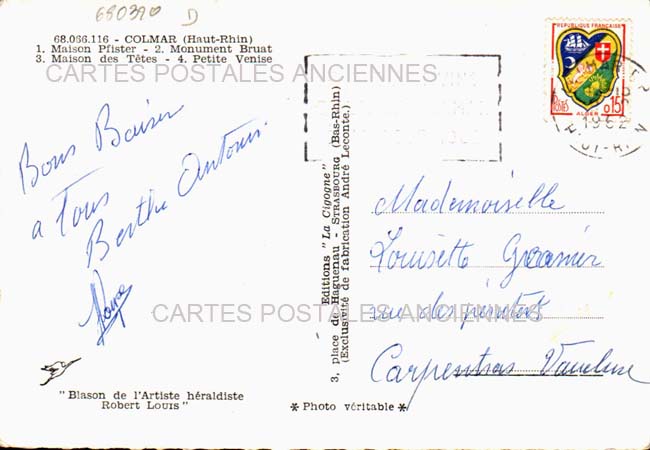 680390 D
68.066.116 - COLMAR (Haut-Rhin)
1. Maison Pfister - 2. Monument Bruat
3. Maison des Têtes - 4. Petite Venise
CARTES POSTALES ANCIENNES
REPUBLIQUE FRANÇAISE
POSTES
0,15
ALGER
1962
Bons Baisers
a Tous
Berthe Antonin.
Editions "La Cigogne"
3, place de Haguenau - STRASBOURG (Bas-Rhin)
(Exclusivité de fabrication André Leconte.)
Mademoiselle
Louisette
rue des
Carpentras Vaucluse
CARTES POSTALES ANCIENNES
"Blason de l'Artiste héraldiste
Robert LOUIS"
* Photo véritable *